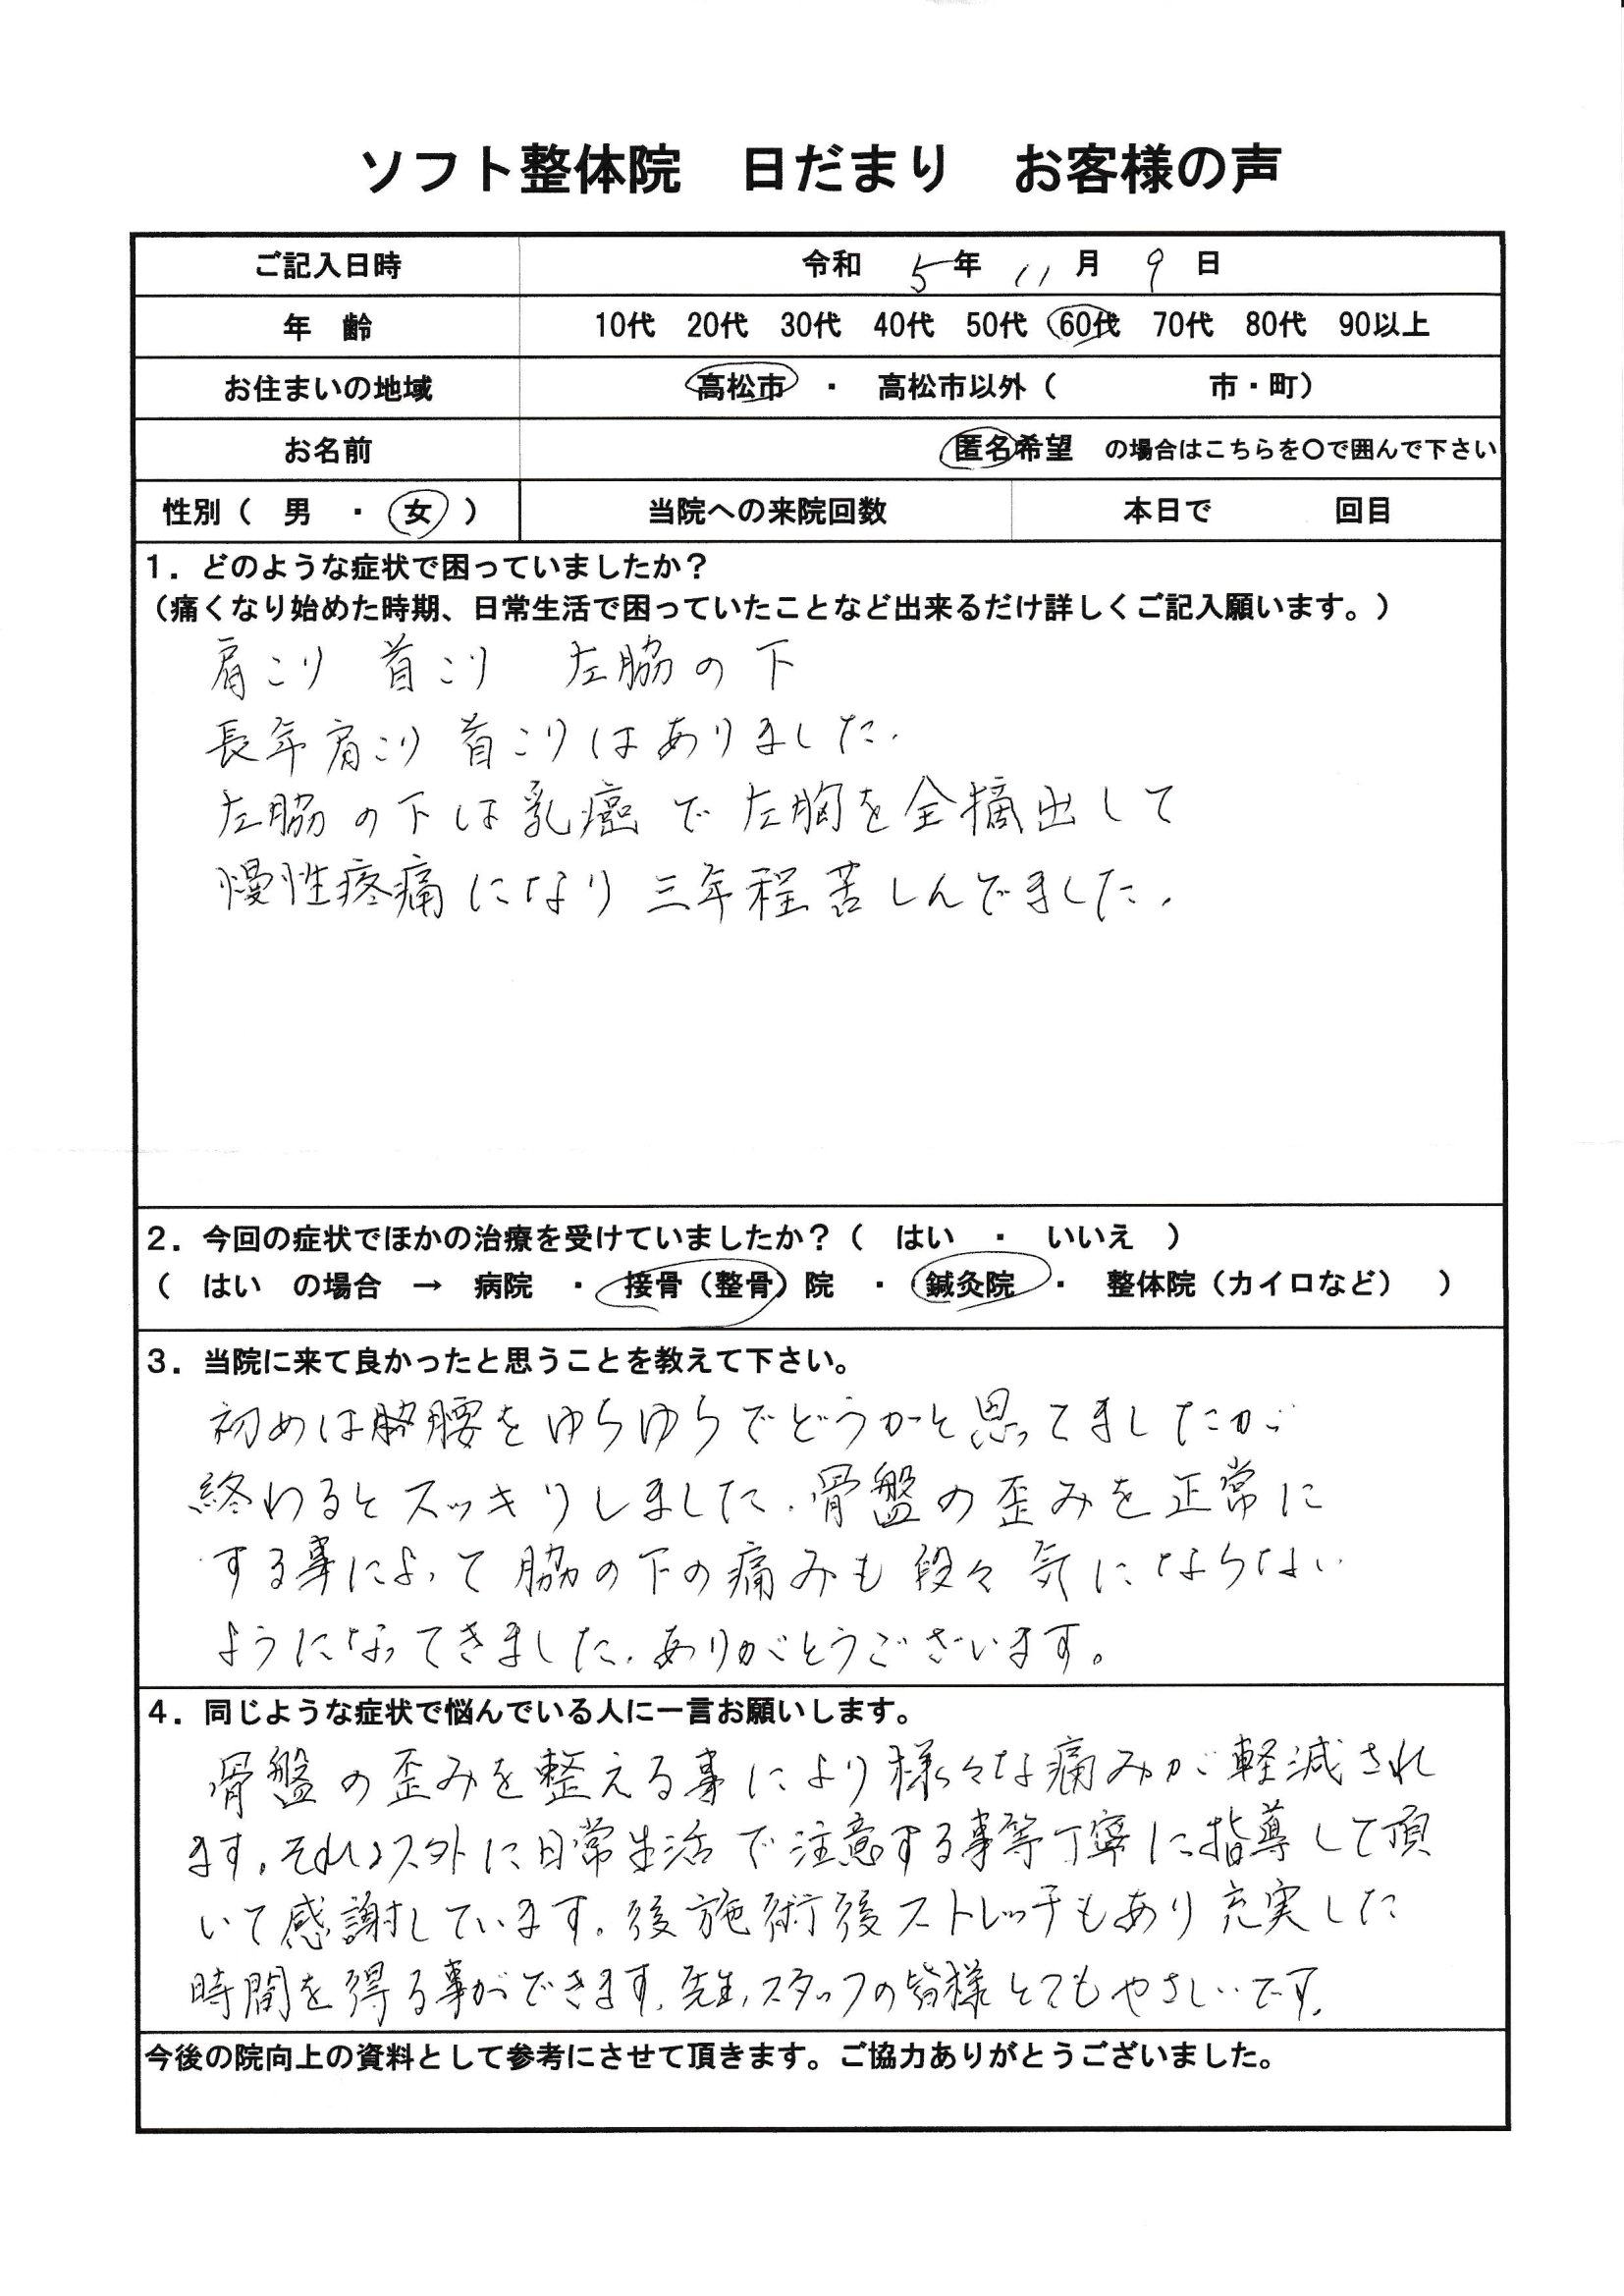 ソフト整体院 日だまり お客様の声
ご記入日時 令和 5年 11月 9日
年 齢 10代 20代 30代 40代 50代 60代 70代 80代 90以上
お住まいの地域 高松市 ・ 高松市以外（ 市・町）
お名前 匿名希望 の場合はこちらを〇で囲んで下さい
性別（ 男 ・ 女 ） 当院への来院回数 本日で 回目
１．どのような症状で困っていましたか？
（痛くなり始めた時期、日常生活で困っていたことなど出来るだけ詳しくご記入願います。）
肩こり 首こり 左脇の下
長年肩こり首こりはありました.
左脇の下は乳癌で左胸を全摘出して
慢性疼痛になり三年程苦しんでました.
２．今回の症状でほかの治療を受けていましたか？（ はい ・ いいえ ）
（ はい の場合 → 病院 ・ 接骨（整骨）院 ・ 鍼灸院 ・ 整体院（カイロなど） ）
３．当院に来て良かったと思うことを教えて下さい。
初めは 腰をゆらゆらでどうかと思ってましたが
終わるとスッキリしました.骨盤の歪みを正常に
する事によって脇の下の痛みも段々気にならない
ようになってきました.ありがとうございます。
４．同じような症状で悩んでいる人に一言お願いします。
骨盤の歪みを整える事により様々な痛みが軽減され
ます。それ以外に日常生活で注意する事等丁寧に指導して頂
いて感謝しています。後施術後ストレッチもあり充実した
時間を得る事ができます.先生,スタッフの皆様とてもやさしいです.
今後の院向上の資料として参考にさせて頂きます。ご協力ありがとうございました。